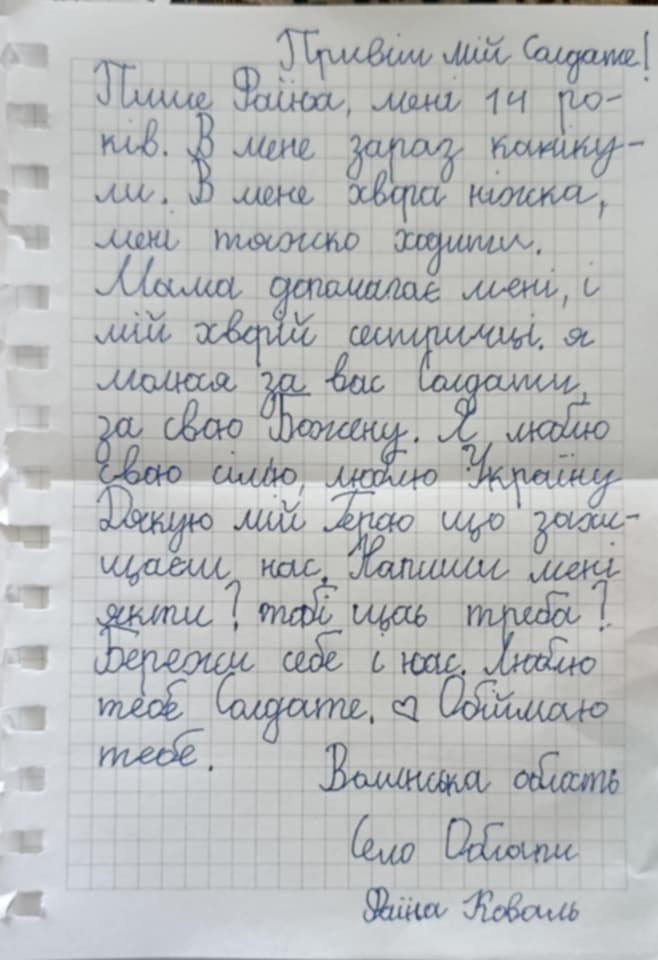 Привіт мій Солдате!
Пише Фаїна, мені 14 ро-
ків. В мене зараз каніку-
ли. В мене хвора ніжка,
мені тяжко ходити.
Мама допомагає мені, і
мій хворій сестричці. я
молюся за вас Солдати,
за свою Божену. Я люблю
свою сімю, люблю Україну
Дякую мій Герою що захи-
щаєш нас. Напиши мені
якти? тобі щось треба?
Бережи себе і нас. Люблю
тебе Солдате. ♡ Обіймаю
тебе.
Волинська область
Село Облапи
Фаїна Коваль